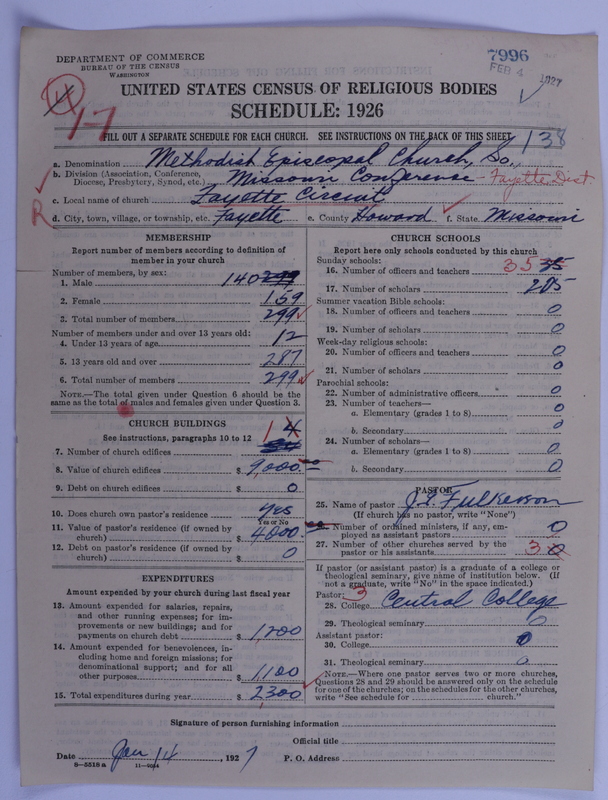 DEPARTMENT OF COMMERCE
BUREAU OF THE CENSUS
WASHINGTON
7996
FEB 4 1927
UNITED STATES CENSUS OF RELIGIOUS BODIES
SCHEDULE: 1926
17
138
FILL OUT A SEPARATE SCHEDULE FOR EACH CHURCH. SEE INSTRUCTIONS ON THE BACK OF THIS SHEET
a. Denomination Methodist Episcopal Church, So.,
b. Division (Association, Conference, Diocese, Presbytery, Synod, etc.) Missouri Conference - Fayette Dist.
c. Local name of church Fayette Circuit
R
d. City, town, village, or township, etc. Fayette e. County Howard f. State Missouri
MEMBERSHIP
Report number of members according to definition of
member in your church
Number of members, by sex:
1. Male 140 299
2. Female 159
3. Total number of members 299
Number of members under and over 13 years old:
4. Under 13 years of age 12
5. 13 years old and over 287
6. Total number of members 299
NOTE.—The total given under Question 6 should be
same as the total of males and females given under Question 3.
CHURCH BUILDINGS
See instructions, paragraphs 10 to 12
1 4
7. Number of church edifices
8. Value of church edifices $ 9,000
9. Debt on church edifices $ 0
10. Does church own pastor's residence yes
Yes or No
11. Value of pastor's residence (if owned by
church) $ 4000
12. Debt on pastor's residence (if owned by
church) $ 0
EXPENDITURES
Amount expended by your church during last fiscal year
13. Amount expended for salaries, repairs,
and other running expenses; for im-
provements or new buildings; and for
payments on church debt $ 1,200
14. Amount expended for benevolences, in-
cluding home and foreign missions; for
denominational support; and for all
other purposes $ 1,100
15. Total expenditures during year $ 2,300
CHURCH SCHOOLS
Report here only schools conducted by this church
Sunday schools:
16. Number of officers and teachers 35 35
17. Number of scholars 205
Summer vacation Bible schools:
18. Number of officers and teachers 0
19. Number of scholars 0
Week-day religious schools:
20. Number of officers and teachers 0
21. Number of scholars 0
Parochial schools:
22. Number of administrative officers 0
23. Number of teachers—
a. Elementary (grades 1 to 8) 0
b. Secondary 0
24. Number of scholars—
a. Elementary (grades 1 to 8) 0
b. Secondary 0
PASTOR
25. Name of pastor J. E. Fulkerson
(If church has no pastor, write "None")
26. Number of ordained ministers, if any, em-
ployed as assistant pastors 0
27. Number of other churches served by the
pastor or his assistants 3 0
If pastor (or assistant pastor) is a graduate of a college or
theological seminary, give name of institution below. (If
not a graduate, write "No" in the space indicated.)
Pastor: 3
28. College Central College
29. Theological seminary 0
Assistant pastor:
30. College 0
31. Theological seminary 0
NOTE.—Where one pastor serves two or more churches,
Questions 28 and 29 should be answered only on the schedule
for one of the churches; on the schedules for the other churches,
write "See schedule for church."
Signature of person furnishing information
Official title
Date Jan 14, 1927 P. O. Address
8—5518 a